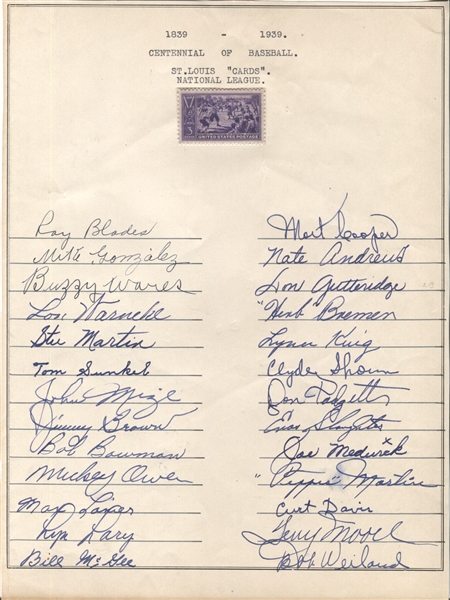 1839 - 1939.
CENTENNIAL OF BASEBALL.
ST.LOUIS "CARDS".
NATIONAL LEAGUE.
3
UNITED STATES POSTAGE
Ray Blades
Mike González
Buzzy Wares
Lon Warneke
Stu Martin
Tom Sunkel
John Mize
Jimmy Brown
Bob Bowman
Mickey Owen
Lyn Lary
Bill McGee
Mort Cooper
Nate Andrews
Don Gutteridge
"Herb" Bremer
Lynn King
Clyde Shoun
Don Padgett
Enos Slaughter
Joe Medwick
"Pepper" Martin
Curt Davis
Terry Moore
Bob Weiland